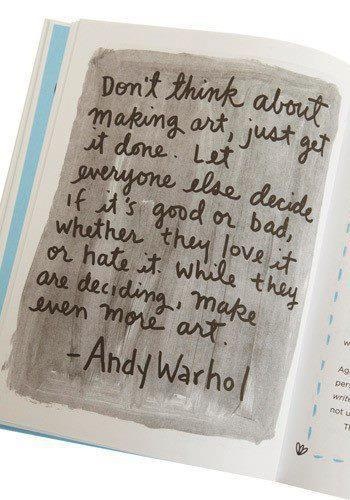 Don't think about
making art, just get
it done. Let
everyone else decide
if it's good or bad,
whether they love it
or hate it. While they
are deciding, make
even more art.
-Andy Warhol
w
Aga
pers
write
not u
Th